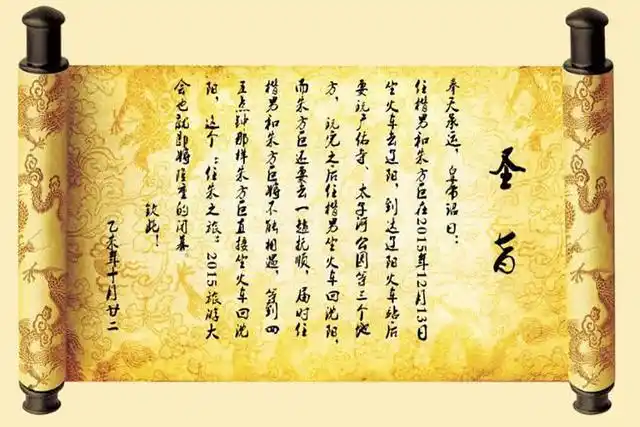 圣旨
奉天承运，皇帝诏曰：
住楷男和朱方巨在2015年12月13日
坐火车去辽阳，到达辽阳火车站后
要玩广佑寺、太子河公园等三个地
方，玩完之后住楷男坐火车回沈阳，
而朱方巨还要去一趟抚顺，届时住
楷男和朱方巨将不能相遇，等到四
五点钟那样朱方巨直接坐火车回沈
阳，这个：住朱之旅：2015旅游大
会也就即将隆重的闭幕。
钦此！
乙未年十月廿二